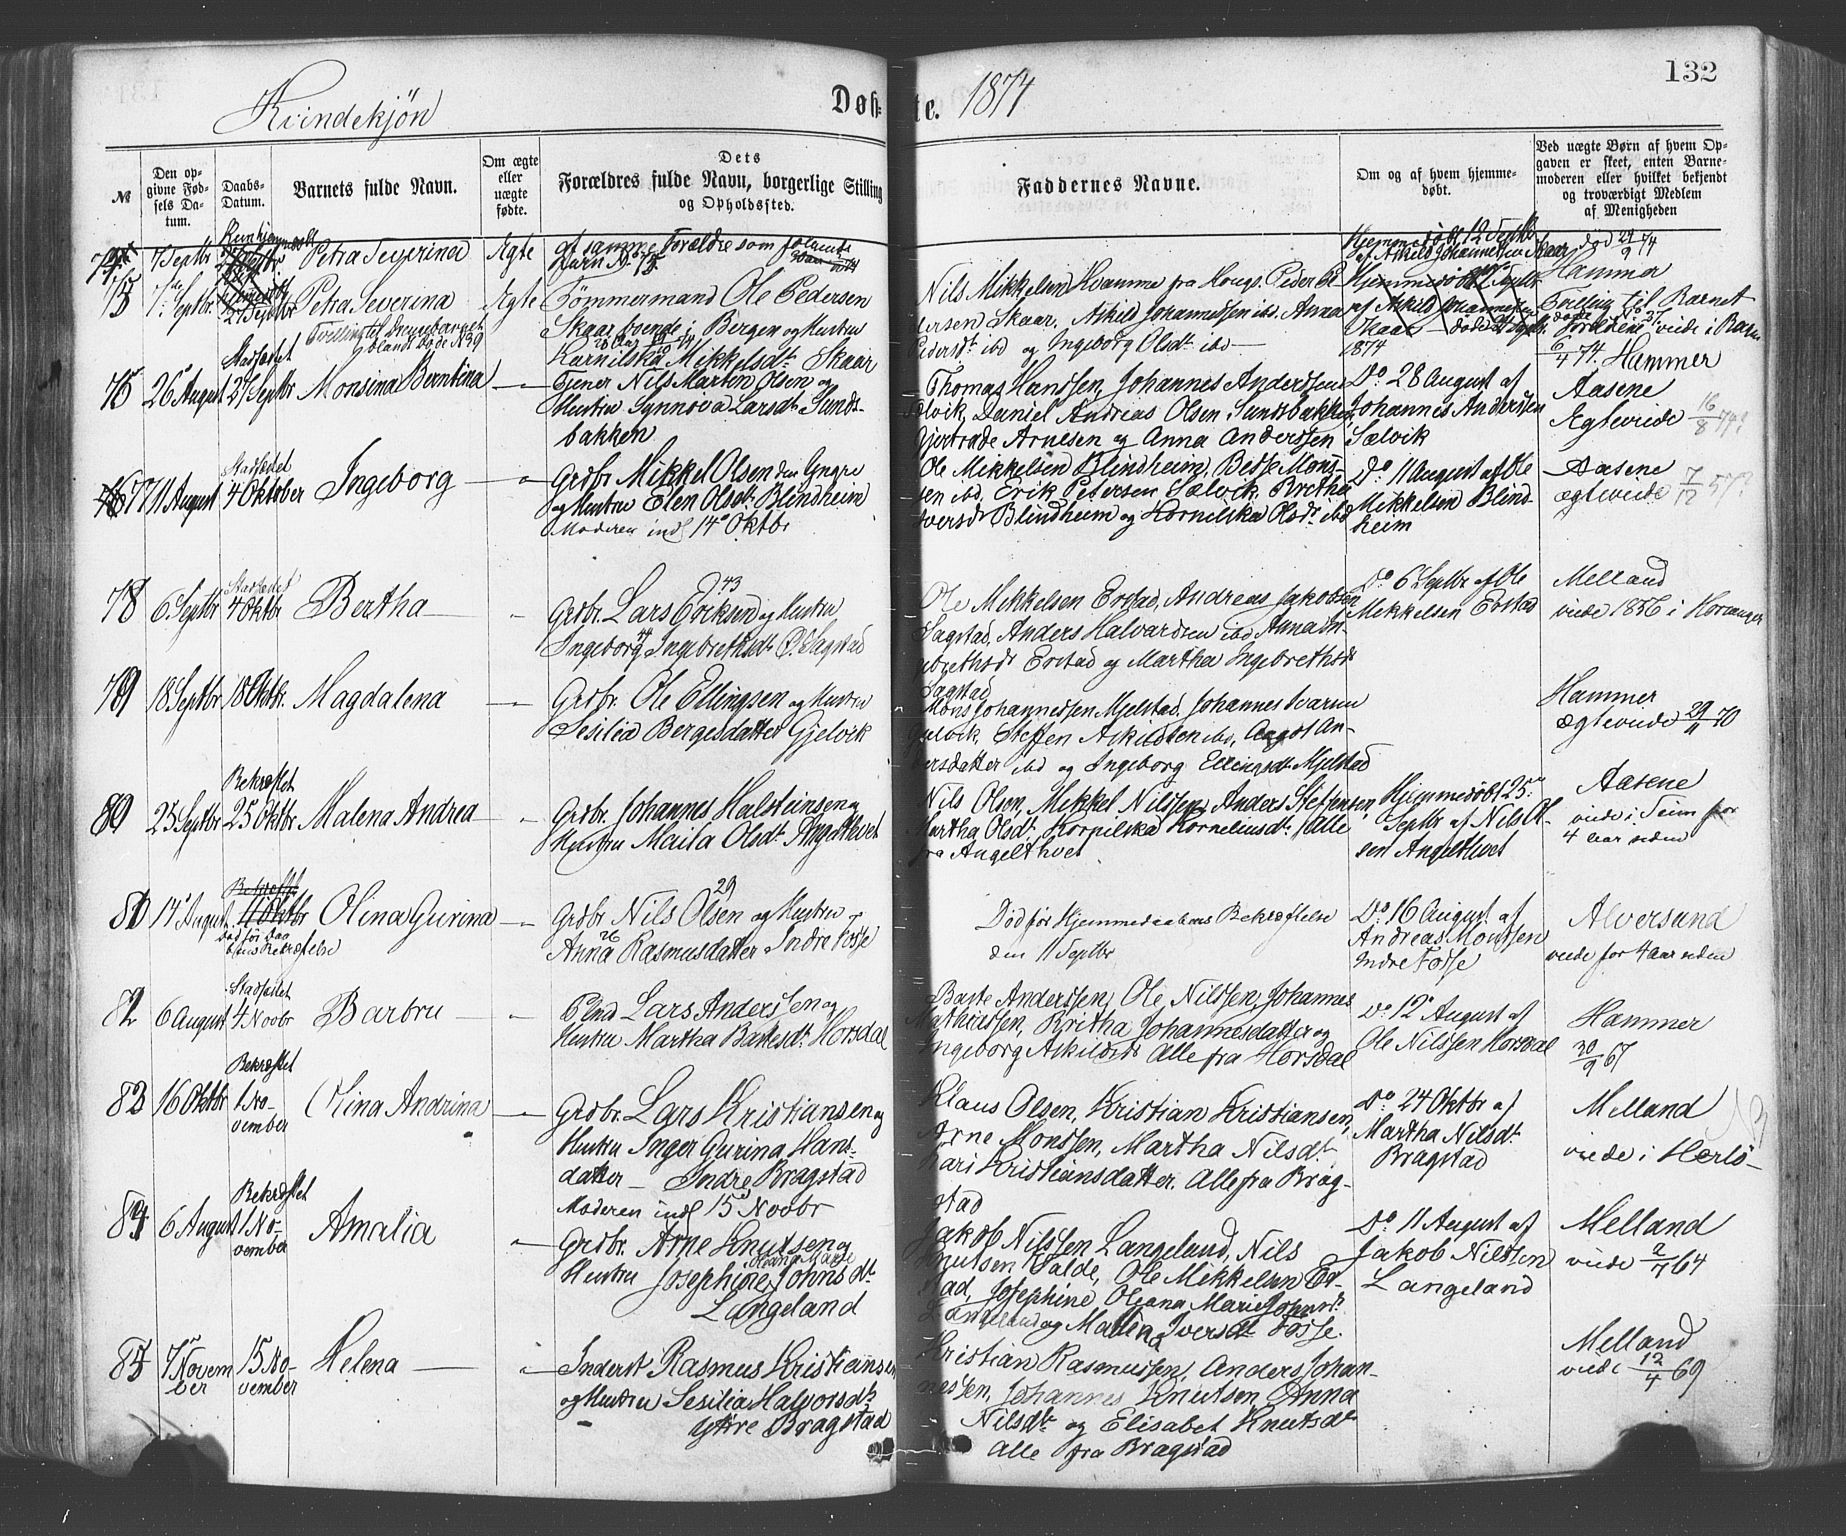 Kvindekjön
Døbte. 1874
132
№
Den opgivne Fødsels Datum.
Daabs-Datum.
Barnets fulde Navn.
Om ægte eller uægte fødte.
Dets Forældres fulde Navn, borgerlige Stilling og Opholdssted.
Faddernes Navne.
Om og af hvem hjemmedøbt.
Ved uægte Børn af hvem Opgaven er skeet, enten Barnemoderen eller hvilket bekjendt og troværdigt Medlem af Menigheden
7 Septbr Petra Severina Ægte af samme Forældre som
Hjemmedøbt 12 Septbr af Askild Johannessen Skaar død 24/9 74
75 7 Septbr. 27 Septbr Petra Severina Ægte Tømmermand Ole Pedersen
Skaar boende i Bergen og Hustru
Karnilska Mikkelsdt. Skaar
Nils Mikkelsen Kvamme fra Houg. Peder
Pedersen Skaar. Askild Johannessen ibd. Anna
Pedersdt ibd og Ingeborg Olsdt ibd
Hammer
6/4 74. Hammer
Stadfæstet
26 August 27 Septbr Monsina Berntina
Tjener Nils Marten Olsen og
Hustru Synnøva Larsdt. Sunds-
bakken
Thomas Hanssen, Johannes Anderssen
Sælvik, Daniel Andreas Olsen Sundsbakken
Gjertrude Arnesen og Anna Anderssen
Do 28 August af
Johannes Anderssen
Sælvik
Aasene
Egteviede 16/8 74?
Stadfæstet
77 11 August 4 Oktober Ingeborg
Grdbr. Mikkel Olsen den Yngre
og Hustru Elen Olsdt. Blindheim
Moderen indl 14 Oktbr
Ole Mikkelsen Blindheim, Bedse Mons-
sen ibd, Erik Petersen Sælvik, Bretha
Iversdt Blindheim og Kornilska Olsdt. ibd
Do 11 August af Ole
Mikkelsen Blind-
heim
Aasene
ægteviede 7/12 57?
Stadfæstet
78 6 Septbr 4 Oktbr Bertha
Grdbr. Lars Eriksen 43 og Hustru
Ingeborg Ingebrethsdt. Ø. Sagstad
Ole Mikkelsen Erstad, Andreas Jakobsen
Sagstad, Anders Halvardsen ibd Anna In-
gebrethsdt Erstad og Martha Ingebrethsdt
Sagstad
Do 6 Septbr af Ole
Mikkelsen Erstad
Melland
viede 1856 i Hosanger
79 18 Septbr 18 Oktbr. Magdalena
Grdbr. Ole Ellingsen og Hustru
Sesilia Bergesdatter Gjelvik
Mons Johannessen Mjelstad. Johannes Ivarsen
Gjelvik, Steffen Askildsen ibd,
og Ingeborg Ellingsdt. Mjelstad
Hammer
ægteviede 29/4 70
Bekræftet
80 25 Septbr 25 Oktbr Malena Andrea
Grdbr. Johannes Halsteinsen og
Hustru Maita Olsdt. Angelthvet
Nils Olsen, Mikkel Nilssen, Anders Steffensen,
Martha Olsdt, Kornilska Korneliusdt. Alle
fra Angelthvet
Hjemmedøbt 25
Septbr af Nils Ol-
sen Angelthvet
Aasene
viede i Seim for
4 aar siden
81 14 August Olina Gurina
Grdbr. Nils Olsen 29 og Hustru
Anna 26 Rasmusdatter Indre Fosse
Død før Hjemmedaabens Bekræftelse
den 11 Septbr
Do 16 August af
Andreas Monssen
Indre Fosse
Alversund
viede for 4 aar siden
Stadfæstet
82 6 August 4 Novbr Barbru
Lars Anderssen og
Hustru Martha Baltesdt. Horsdal
Baste Anderssen, Ole Nilssen, Johannes
Mathiessen, Britha Johannesdatter og
Ingeborg Askildsdt Alle fra Horsdal
Do 12 August af
Ole Nilssen Horsdal
Hammer
20/9 67
Bekræftet
83 16 Oktbr 1 No-
vember Olina Andrina
Grdbr. Lars Kristiansen og
Hustru Inger Gurina Hans-
datter Indre Bragstad
Moderen indl 15 Novbr
Klaus Olsen, Kristian Kristiansen,
Arne Monssen, Martha Nilsdt.
Kari Kristiansdatter. Alle fra Brag-
stad
Do 24 Oktbr af
Martha Nilsdt
Bragstad
Melland
viede i Herlö
Bekræftet
84 6 August 1 No-
vember Amalia
Grdbr. Arne Knutsen og
Hustru Josephine Johnsdt
Langeland
Jakob Nilssen Langeland, Nils
Knutsen Valde, Ole Mikkelsen Er-
stad, Josephine Oleana Marie Johnsdt
Langeland og Malena Iversdt Fosse.
Do 11 August af
Jakob Nilssen
Langeland
Melland
viede 2/7 64
85 7 Novem
ber 15 No-
vember Helena
Inderst Rasmus Kristiansen
og Hustru Sesilia Halvorsdt.
Ytre Bragstad
Kristian Rasmussen, Anders Johan-
nessen, Johannes Knutsen, Anna
Nilsdt og Elisabet Knutsdt
Alle fra Bragstad
Melland
viede 12/4 69